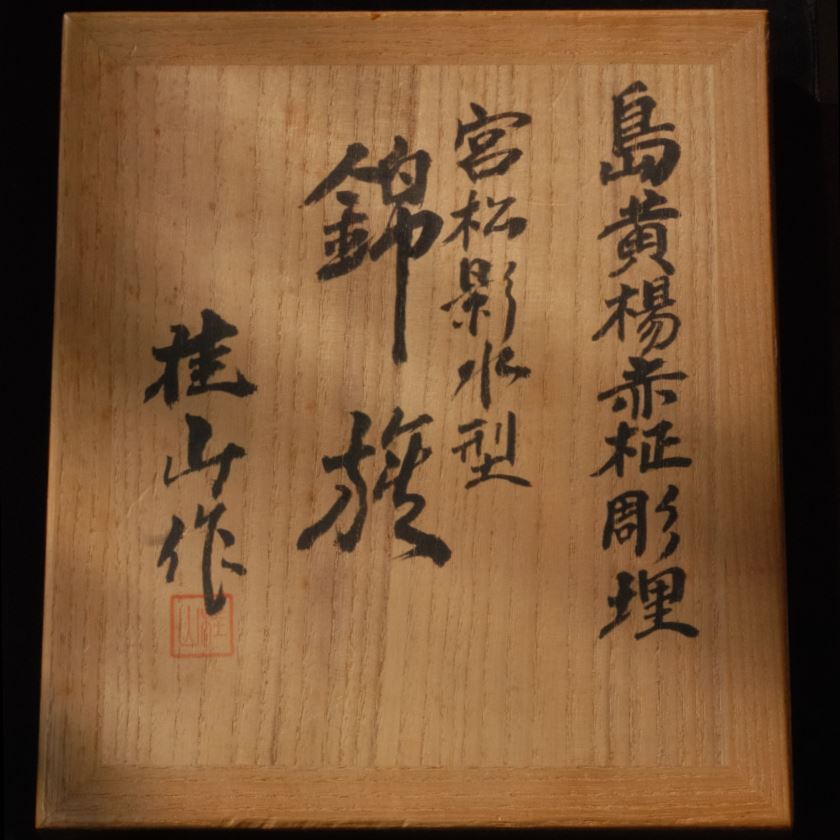 島黄楊赤柾彫埋
宮松影水型
錦旗
桂山作